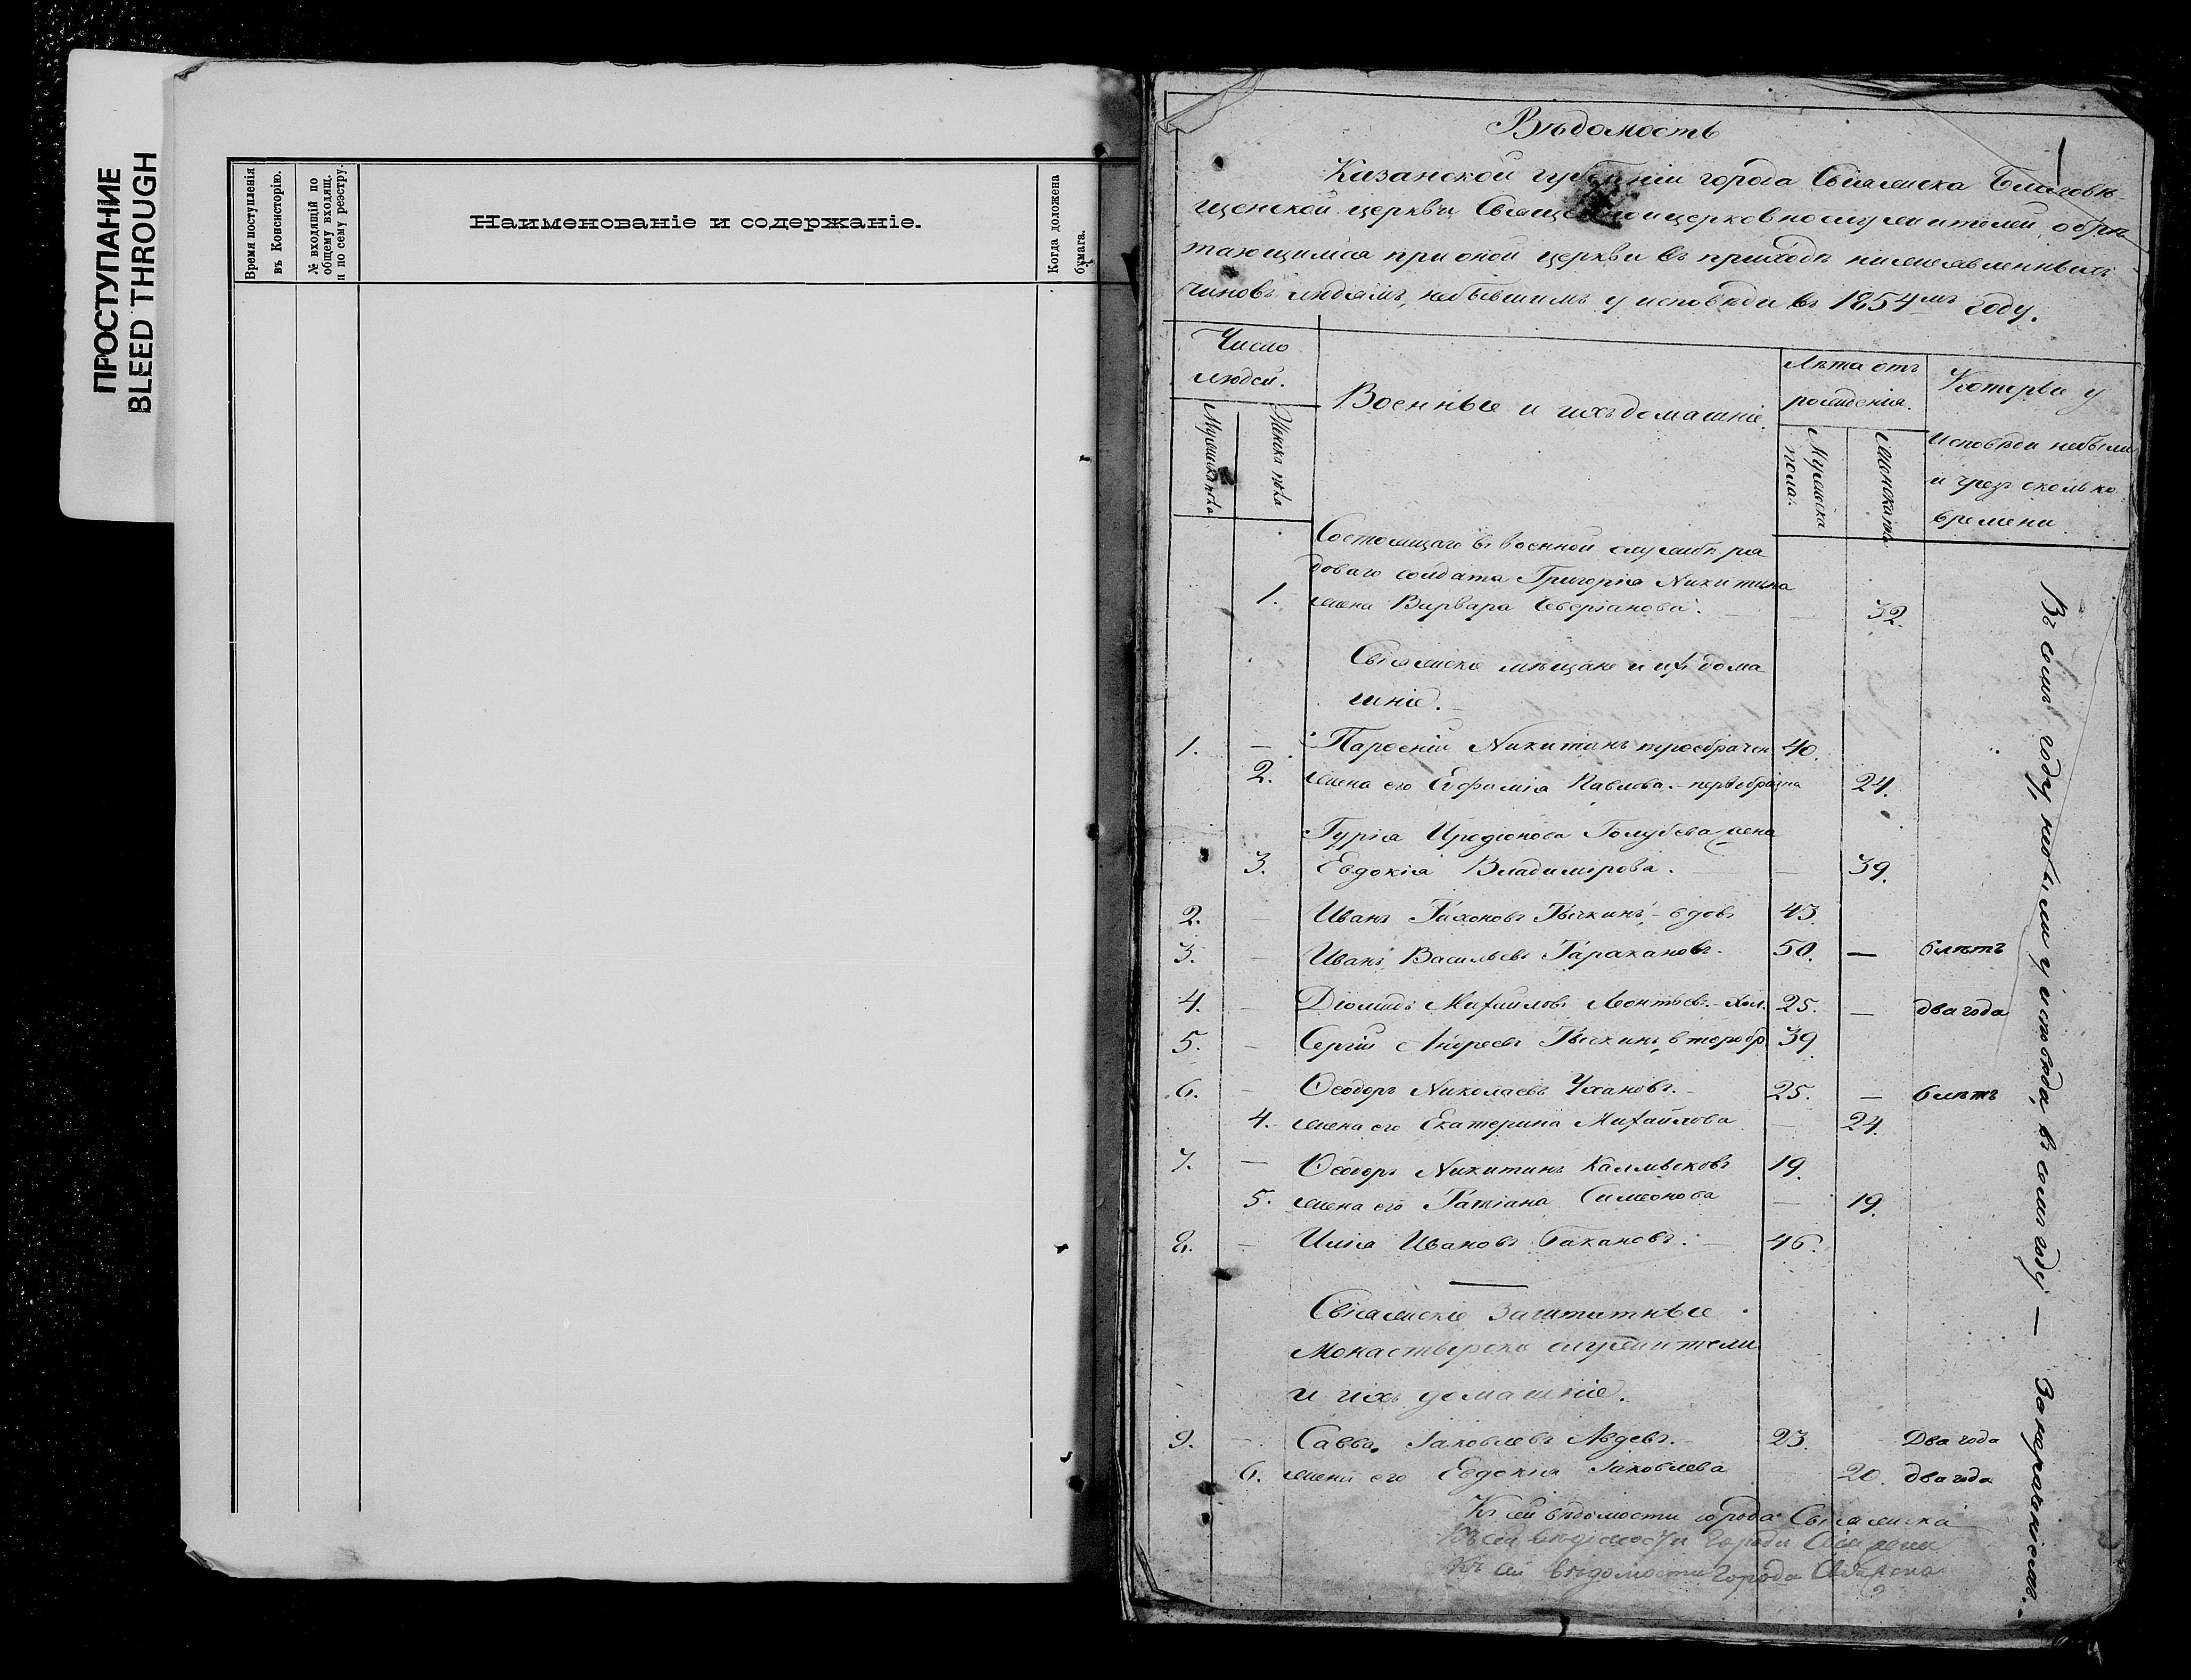 ПРОСТУПАНИЕ
BLEED THROUGH
Время поступленія
въ Консисторію.
№ входящій по
общему входящ.
и по сему реэстру.
Наименованіе и содержаніе.
Когда доложена
бумага.
Вѣдомость
Казанской губерніи города Свіяжска Благовѣ
щенской церкви Священноицерковнослужителей, обрѣ
тающимся при оной церкви въ приходѣ нижеявленныхъ
чиновъ людямъ, небывшимъ у исповѣди въ 1854мъ году.
Число
людей.
Мужеска пола
Женска пола
Военные и ихъ домашніе.
Лѣта отъ
рожденія.
Мужеска
пола.
Женска пола
Которые у
исповѣди небыли
и чрезъ сколько
времени
Состоящаго въ военной службѣ ря
доваго солдата Григорія Никитина
1. жена Варвара Северіанова. — 32.
Свіяжскіе мѣщане и ихъ дома
шніе.
1. — Парѳеній Никитинъ троебрачен 40.
2. жена его Евфимія Павлова. - первобрачна 24.
Гурія Иродіонова Голубева жена
3. Евдокія Владимірова. — 39.
2. — Иванъ Тихоновъ Пычкинъ, - вдовъ 43.
3. — Иванъ Васильевъ Тараканов. 50. — 6 лѣтъ
4. — Діомидъ Михайловъ Леонтьевъ. - хол. 25. — два года
5. — Сергій Андреевъ Пычкинъ, второбр. 39.
6. — Ѳеодоръ Николаевъ Ухановъ. - 25. — 6 лѣтъ
4. жена его Екатерина Михайлова — 24.
7. — Ѳеодоръ Никитинъ Калмыковъ 19.
5. жена его Татіана Симеонова — 19.
8. — Илія Ивановъ Бакановъ. - 46.
Свіяжскіе Заштатные
Монастырскіе служители
и ихъ домашніе.
9. — Савва Іаковлевъ Авдеев. 23. Два года
6. жена его Евдокія Іаковлева 20. два года
Къ сей вѣдомости города Свіяжска
Къ сей вѣдомости города
Къ сей вѣдомости города
Въ семъ году, небыли у исповѣди, въ семъ году — За нерачніемъ. -